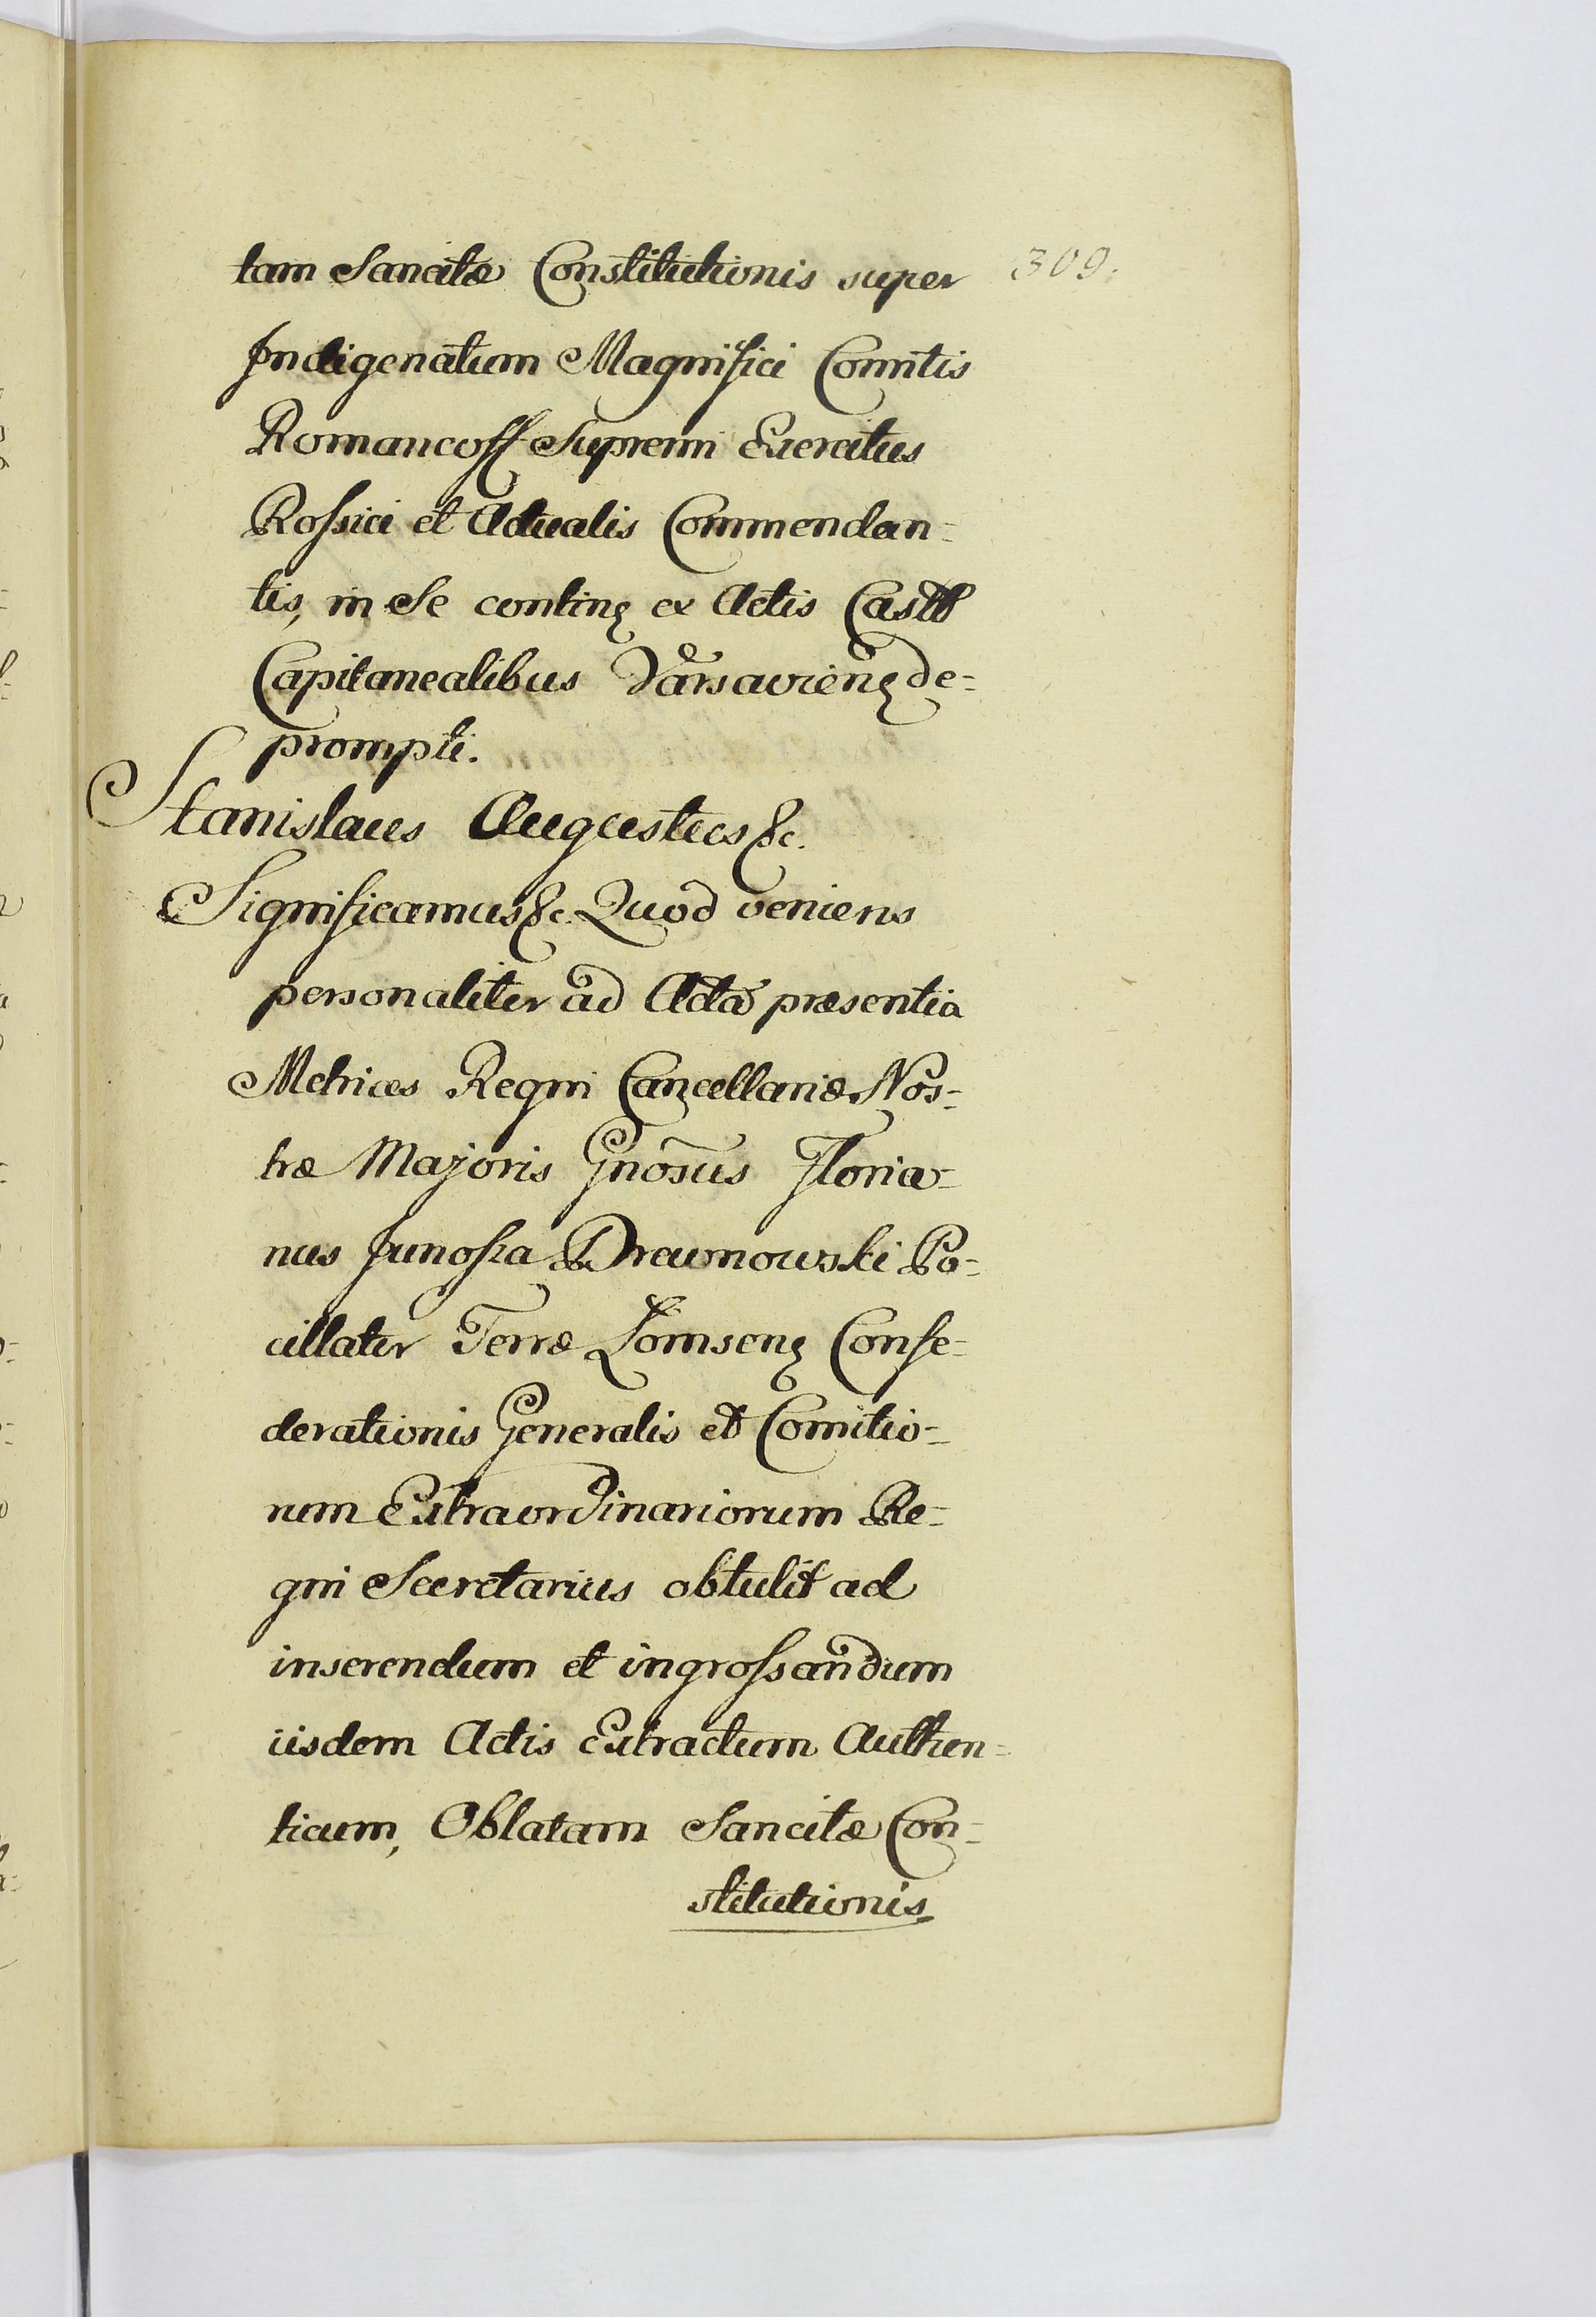 tam Sancitæ Constitutionis super 309.
Indigenatum Magnifici Comitis
Romancoff Supremi Exercitus
Rossici et Actualis Commendan=
tis, in Se continꝫ ex Actis Castr
Capitanealibus Varsavienꝫ de=
prompti.
Stanislaus Augustus &c.
Significamus &c. Quod veniens
personaliter ad Acta præsentia
Metrices Regni Cancellariæ Nos=
træ Majoris Gnosus Floria=
nus Junosza Drewnowski Po=
cillator Terræ Łomsenꝫ Confe=
derationis Generalis et Comitio=
rum Extraordinariorum Re=
gni Secretarius obtulit ad
inserendum et ingrossandum
iisdem Actis Extractum Authen=
ticum, Oblatam Sancitæ Con=
stitutionis